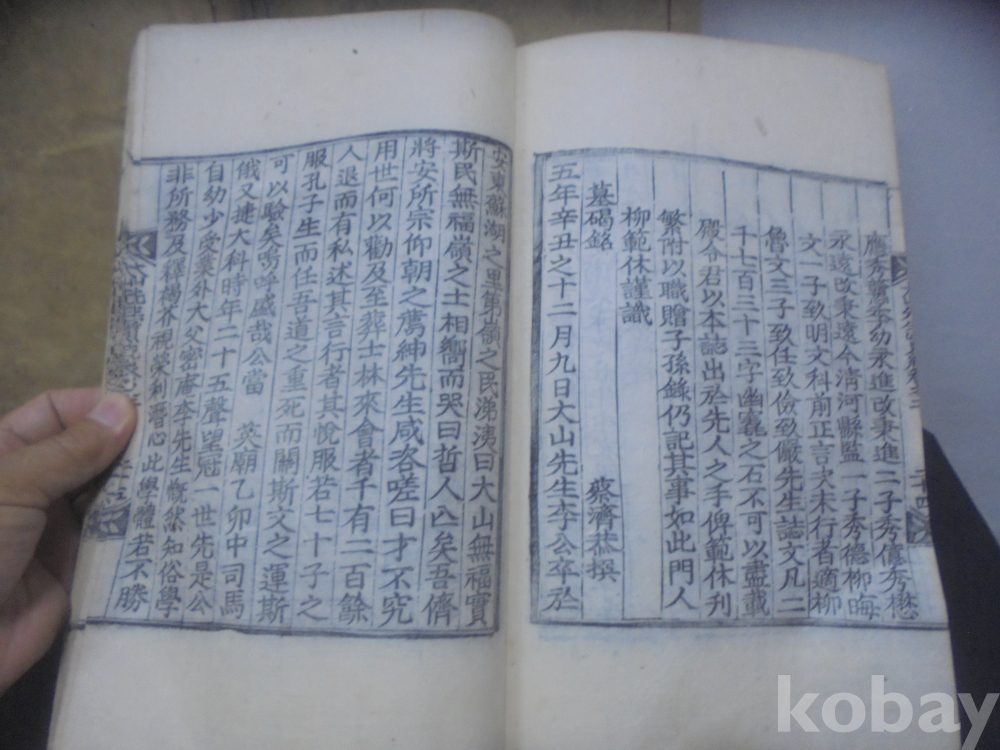 應秀龜奉幼秉進改秉進二子秀億秀懋
永遠改秉遠今清河縣監一子秀德柳晦
文一子致明文科前正言次未行者適柳
魯文三子致任致儉致儼先生誌文凡二
千七百三十三字幽竁之石不可以盡載
殿令君以本誌出於先人之手俾範休刊
繁附以職贈子孫錄仍記其事如此門人
柳範休謹識
墓碣銘 蔡濟恭撰
五年辛丑之十二月九日大山先生李公卒於
安東蘇湖之里第嶺之民涕洟曰大山無福實
斯民無福嶺之士相嚮而哭曰哲人亾矣吾儕
將安所宗仰朝之薦紳先生咸咨嗟曰才不究
用世何以勸及至葬士林來會者千有二百餘
人退而有私述其言行者其悅服若七十子之
服孔子生而任吾道之重死而關斯文之運斯
可以驗矣嗚呼盛哉公當 英廟乙卯中司馬
俄又捷大科時年二十五聲望冠一世先是公
自幼少受業外大父密庵李先生慨然知俗學
非所務及釋褐芥視榮利潛心此學體若不勝
kobay